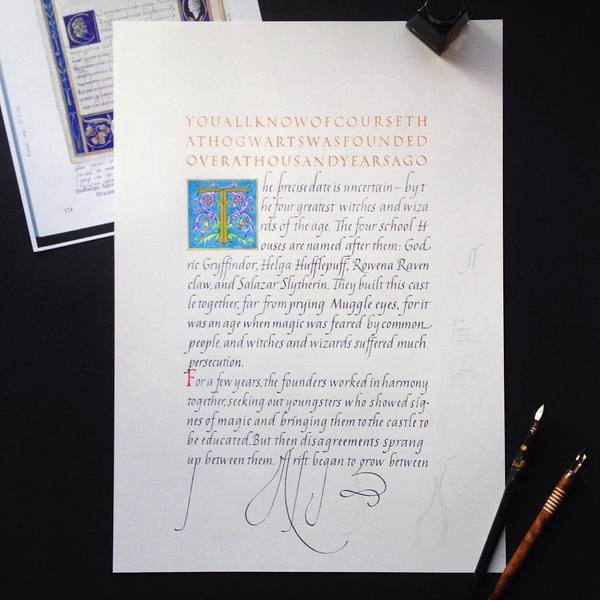 YOUALLKNOWOFCOURSETH
ATHOGWARTSWASFOUNDED
OVERATHOUSANDYEARSAGO
The precise date is uncertain – by t
he four greatest witches and wiza
rds of the age. The four school H
ouses are named after them: God
ric Gryffindor, Helga Hufflepuff, Rowena Raven
claw, and Salazar Slytherin. They built this cast
le together, far from prying Muggle eyes, for it
was an age when magic was feared by common
people, and witches and wizards suffered much
persecution.
For a few years, the founders worked in harmony
together, seeking out youngsters who showed sig-
nes of magic and bringing them to the castle to
be educated. But then disagreements sprang
up between them. A rift began to grow between
174